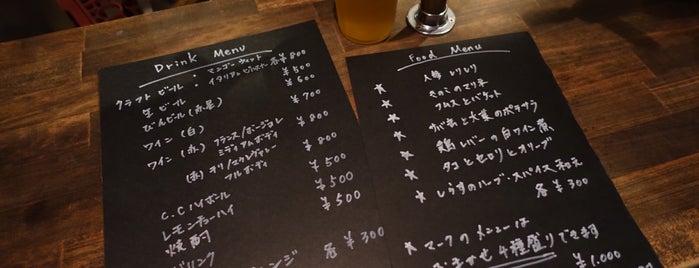 Drink Menu
・マンゴーウィット
クラフトビール・イタリアンピルスナー 各¥800
生ビール ¥500
びんビール(赤星) ¥600
ワイン(白) ¥700
ワイン(赤) フランス/ボージョレ ミディアムボディ ¥800
(赤) チリ/ フルボディ ¥800
C.C ハイボール ¥500
レモンチューハイ ¥500
焼酎 ¥500
各¥300
Food Menu
人参しりしり
★ きのこのマリネ
★ フムスとバゲット
★ サバ缶と水菜のポテサラ
★ 鶏レバーの白ワイン煮
★ タコとセロリとオリーブ
★ しらすのハーブ・スパイス和え
各¥300
★マークのメニューは
おまかせ4種盛りできます
¥1.000